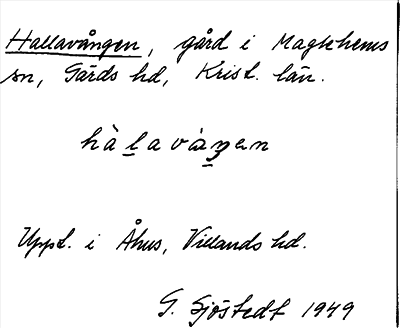 Hallavången, gård i Maglehems
sn, Gärds hd, Krist. län.
hàlavàŋen
Uppt. i Åhus, Villands hd.
G. Sjöstedt 1949